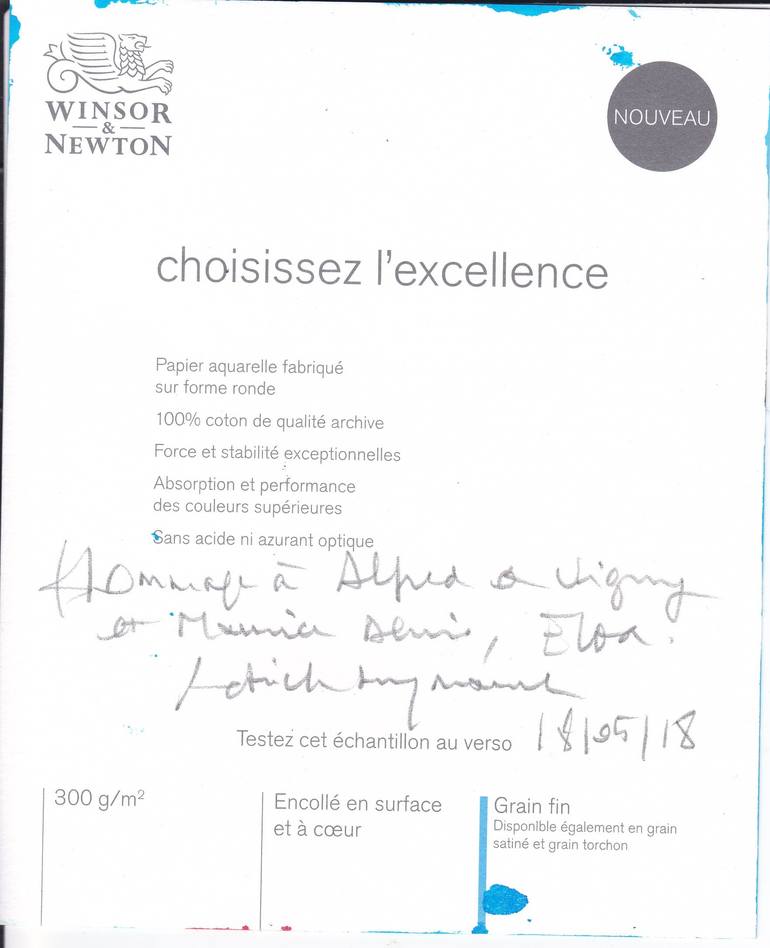 WINSOR
&
NEWTON
NOUVEAU
choisissez l'excellence
Papier aquarelle fabriqué
sur forme ronde
100% coton de qualité archive
Force et stabilité exceptionnelles
Absorption et performance
des couleurs supérieures
Sans acide ni azurant optique
Hommage à Alfred de Vigny
et Maurice Denis, Eloa.
Testez cet échantillon au verso
18/05/18
300 g/m²
Encollé en surface
et à cœur
Grain fin
Disponible également en grain
satiné et grain torchon